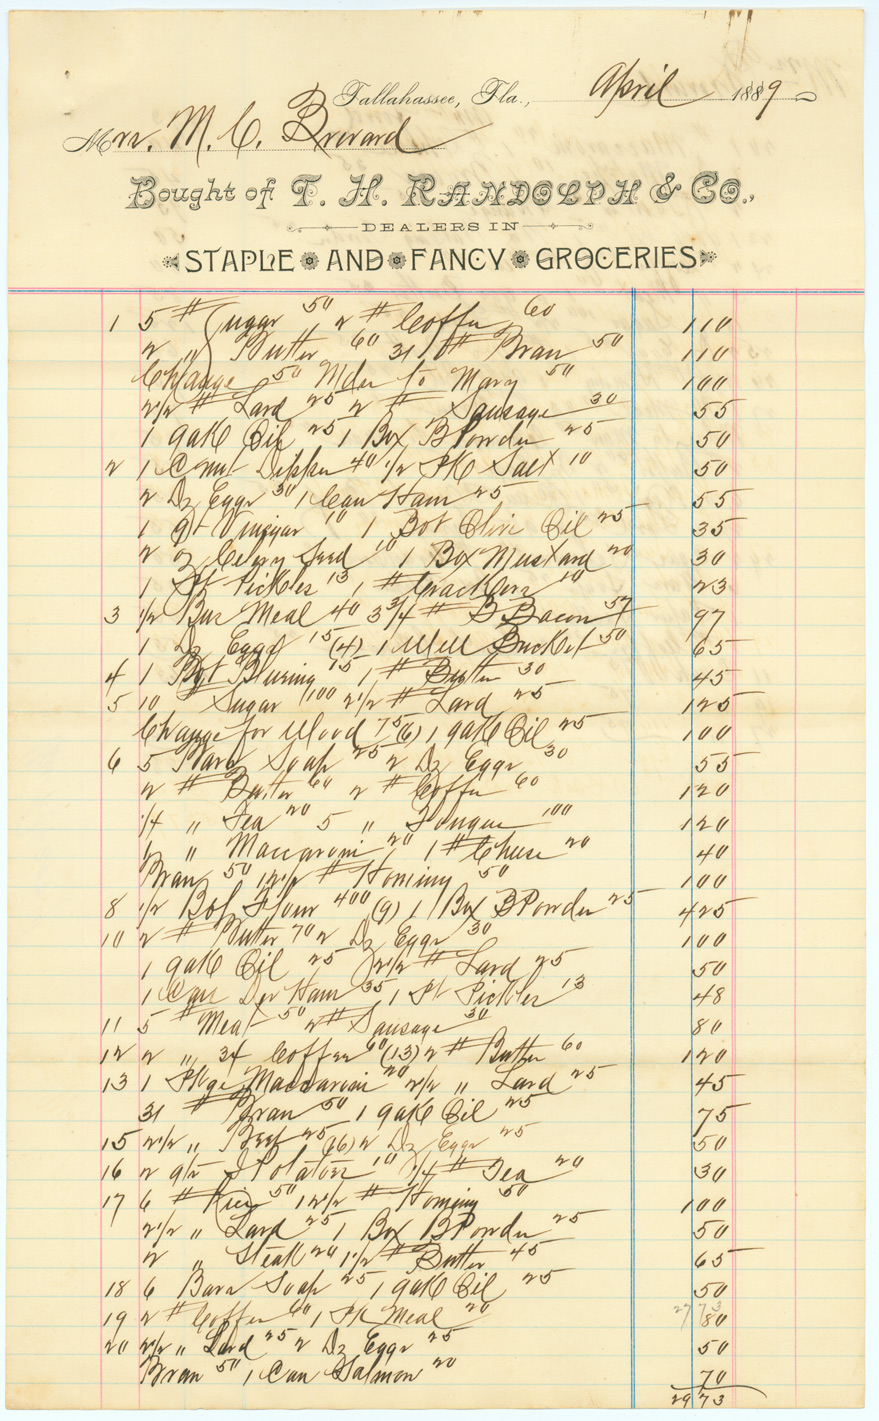 Tallahassee, Fla., April 1889
Mrs. M. C. Brevard
Bought of T. H. RANDOLPH & CO.,
DEALERS IN
STAPLE AND FANCY GROCERIES
1 5 # Sugar 50 2 # Coffee 60 110
2 " Butter 60 31 # Bran 50 110
Change 50 Mdse to Mary 50 100
2 1/2 # Lard 25 2 # Sausage 30 55
1 gall Oil 25 1 Box B Powder 25 50
2 1 Dipper 40 1/2 PK Salt 10 50
2 Dz Eggs 30 1 Can Ham 25 55
1 qt Vinigar 10 1 Bot Olive Oil 25 35
2 oz Celery Seed 10 1 Box Mustard 20 30
1 Pt Pickles 13 1 # Crackers 10 23
3 1/2 Bus Meal 40 3 3/4 # B Bacon 57 97
1 Dz Eggs 15 (4) 1 Well Bucket 50 65
4 1 Bot Bluring 15 1 # Butter 30 45
5 10 " Sugar 100 2 1/2 # Lard 25 125
Change for Wood 75 (6) 1 gall Oil 25 100
6 5 Bars Soap 25 2 Dz Eggs 30 55
2 # Butter 60 2 # Coffee 60 120
1/4 " Tea 20 5 " Tongue 100 120
1 " Maccaroni 20 1 # Cheese 20 40
Bran 50 12 1/2 # Hominy 50 100
8 1/2 Bbl Flour 400 (9) 1 Box B Powder 25 425
10 2 # Butter 70 2 Dz Eggs 30 100
1 gall Oil 25 2 1/2 # Lard 25 50
1 Can Dev Ham 35 1 Pt Pickles 13 48
11 5 # Meat 50 2 # Sausage 30 80
12 2 " Coffee 60 (13) 2 # Butter 60 120
13 1 Pkge Maccaroni 20 2 1/2 " Lard 25 45
31 # Bran 50 1 gall Oil 25 75
15 2 1/2 " Beef 25 (16) 2 Dz Eggs 25 50
16 2 qts I Potatoes 10 1/4 # Tea 20 30
17 6 # Rice 50 12 1/2 # Hominy 50 100
2 1/2 " Lard 25 1 Box B Powder 25 50
2 " Steak 20 1 1/2 # Butter 45 65
18 6 Bars Soap 25 1 gall Oil 25 50
19 2 # Coffee 60 1 Pk Meal 20 80
20 2 1/2 " Lard 25 2 Dz Eggs 25 50
Bran 50 1 Can Salmon 20 70
29 73